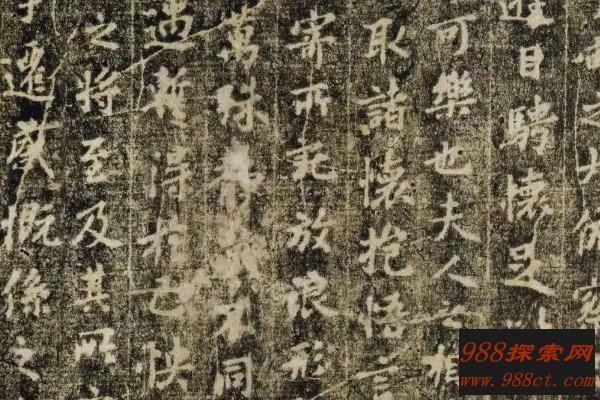 之大俯察
遊目騁懷足以
可樂也夫人之相
取諸懷抱悟言
寄所託放浪形
萬殊静躁不同
遇暫得於己快
之將至及其所
事遷感慨係之
988探索网
www.988ct.com